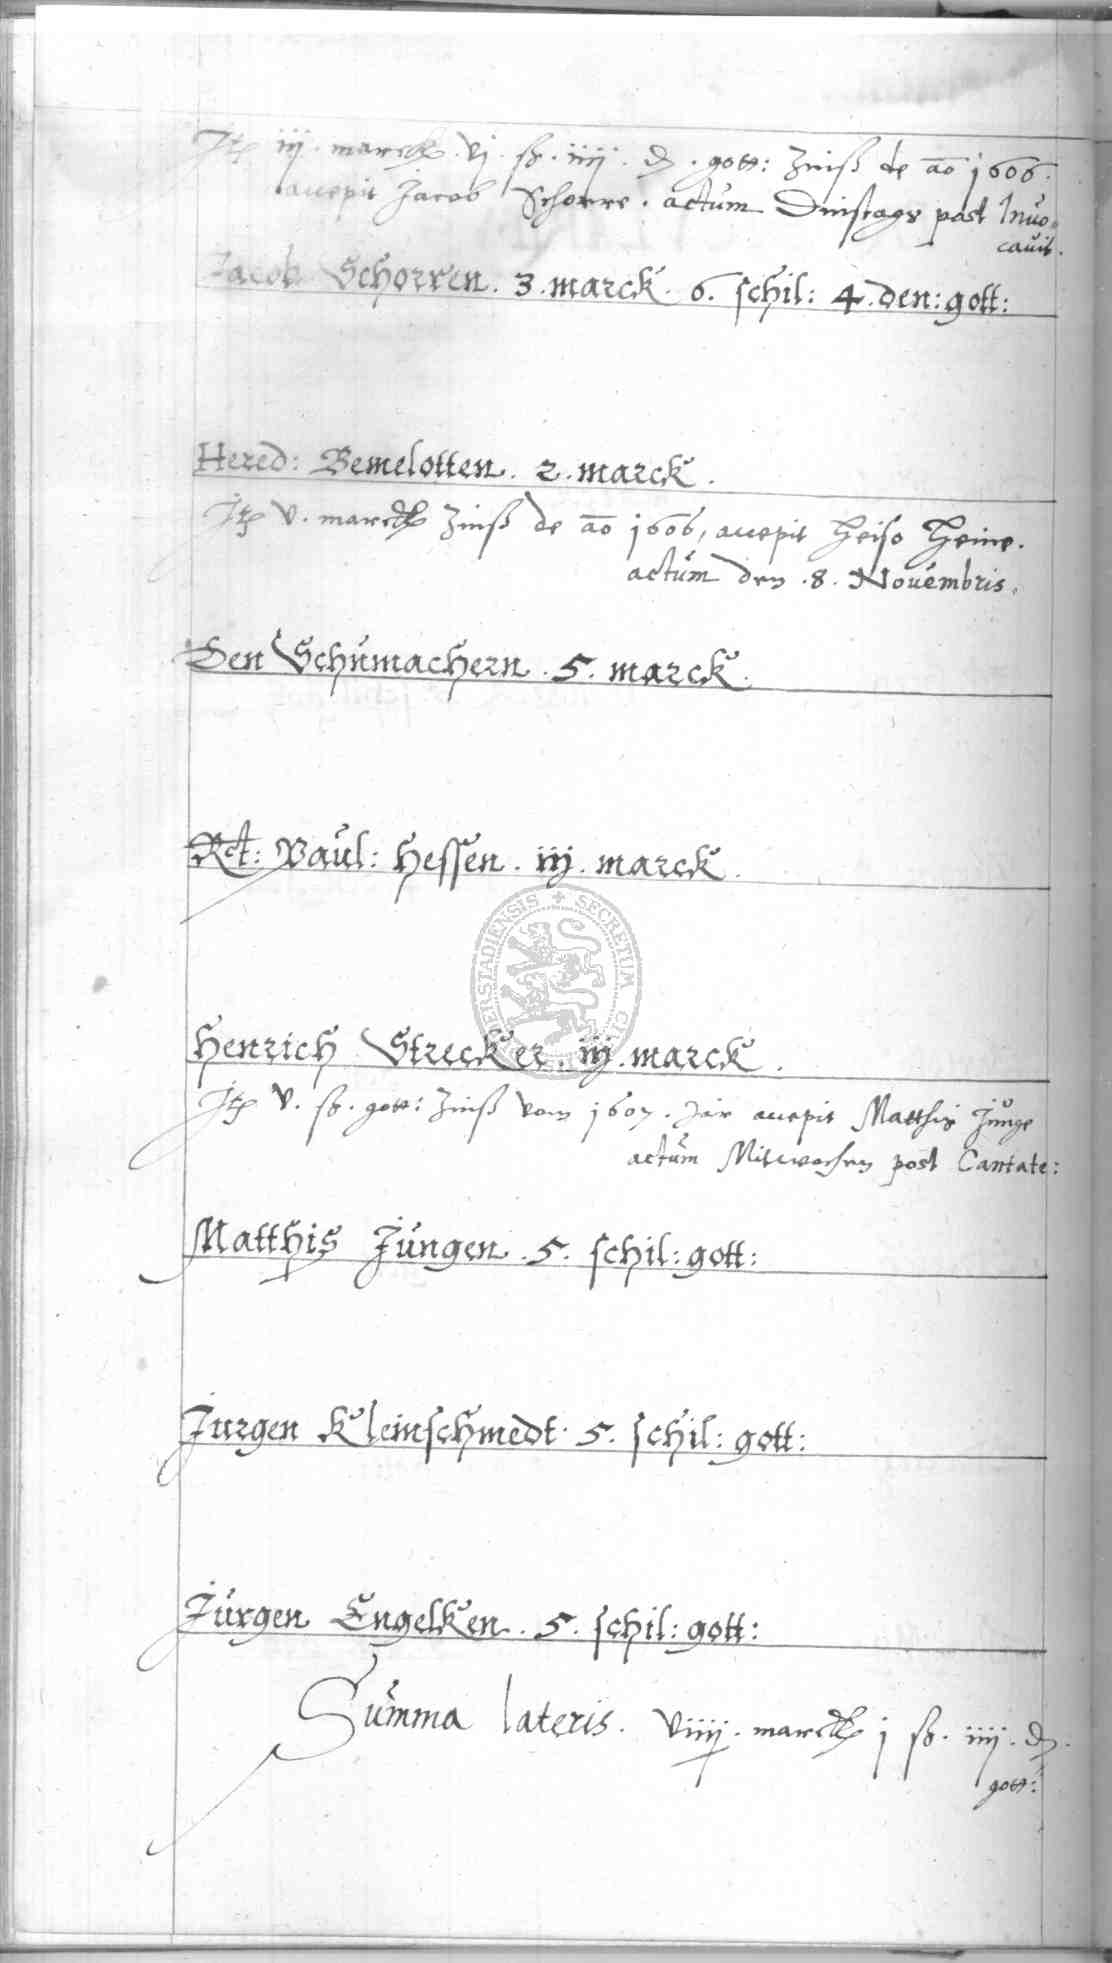 Itē iij. marck. vj. ß. iiij. ₰. gott: Zinß de ao 1606.
accepit Jacob Schorre. actum Dinstags post Inuo-
cauit.
Jacob Schorren. 3. marck. 6. schil: 4. den: gott:
Hered: Bemelotten. 2. marck.
Itē v. marck Zinß de ao 1606, accepit Heiso Heine.
actum den .8. Nouembris.
Den Schumachern. 5. marck.
Rct: Paul: Hessen. iij. marck.
Henrich Strecker. iij. marck.
Itē v. ß. gott: Zinß vom 1607. Jar accepit Matthis Junge
actum Mitwochen post Cantate:
Matthis Jungen. 5. schil: gott:
Jurgen Kleinschmedt. 5. schil: gott:
Jurgen Engelken. 5. schil: gott:
Summa lateris. viiij. marck j ß. iiij. ₰.
gott:
SECRETUM